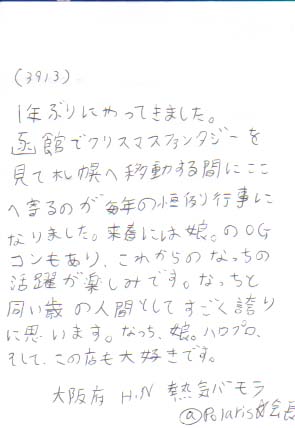 (3913)
1年ぶりにやってきました。
函館でクリスマスファンタジーを
見て札幌へ移動する間にここ
へ寄るのが毎年の恒例行事に
なりました。来春には娘。のOG
コンもあり、これからのなっちの
活躍が楽しみです。なっちと
同い歳の人間としてすごく誇り
に思います。なっち、娘。ハロプロ、
そして、この店も大好きです。
大阪府 H.N 熱気バモラ
@Polaris 会長